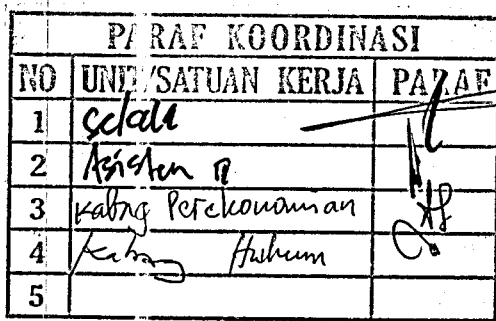 PARAF KOORDINASI
NO UNIT/SATUAN KERJA PARAF
1 Sekda
2 Asisten II
3 Kabag Perekonomian
4 Kabag Hukum
5